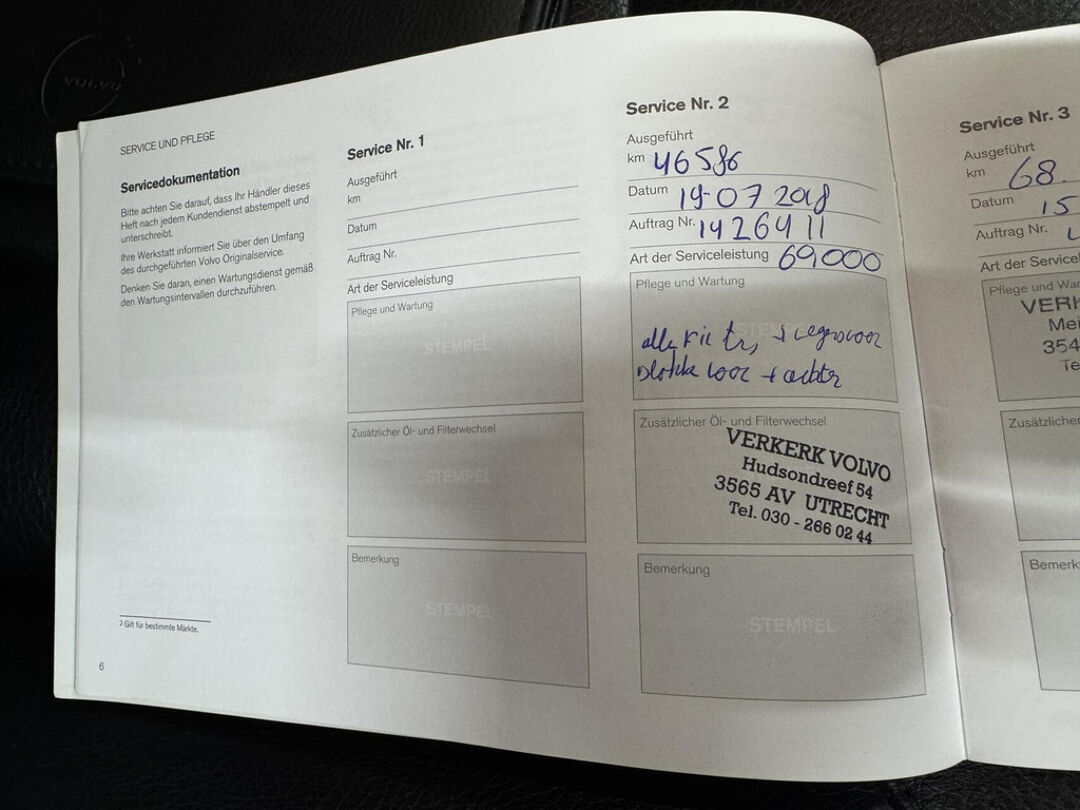 VOLVO
SERVICE UND PFLEGE
Servicedokumentation
Bitte achten Sie darauf, dass Ihr Händler dieses
Heft nach jedem Kundendienst abstempelt und
unterschreibt.
Ihre Werkstatt informiert Sie über den Umfang
des durchgeführten Volvo Originalservice.
Denken Sie daran, einen Wartungsdienst gemäß
den Wartungsintervallen durchzuführen.
2 Gilt für bestimmte Märkte.
6
Service Nr. 1
Ausgeführt
km
Datum
Auftrag Nr.
Art der Serviceleistung
Pflege und Wartung
STEMPEL
Zusätzlicher Öl- und Filterwechsel
STEMPEL
Bemerkung
STEMPEL
Service Nr. 2
Ausgeführt
km 46586
Datum 19-07 2018
Auftrag Nr. 1426911
Art der Serviceleistung 69.000
Pflege und Wartung
STEMPEL
alle
voor + achter
Zusätzlicher Öl- und Filterwechsel
VERKERK VOLVO
Hudsondreef 54
3565 AV UTRECHT
Tel. 030 - 266 02 44
Bemerkung
STEMPEL
Service Nr. 3
Ausgeführt
km 68.
Datum 15
Auftrag Nr.
Art der Service
Pflege und War
VERK
Mei
354
Te
Zusätzlicher
Bemerk